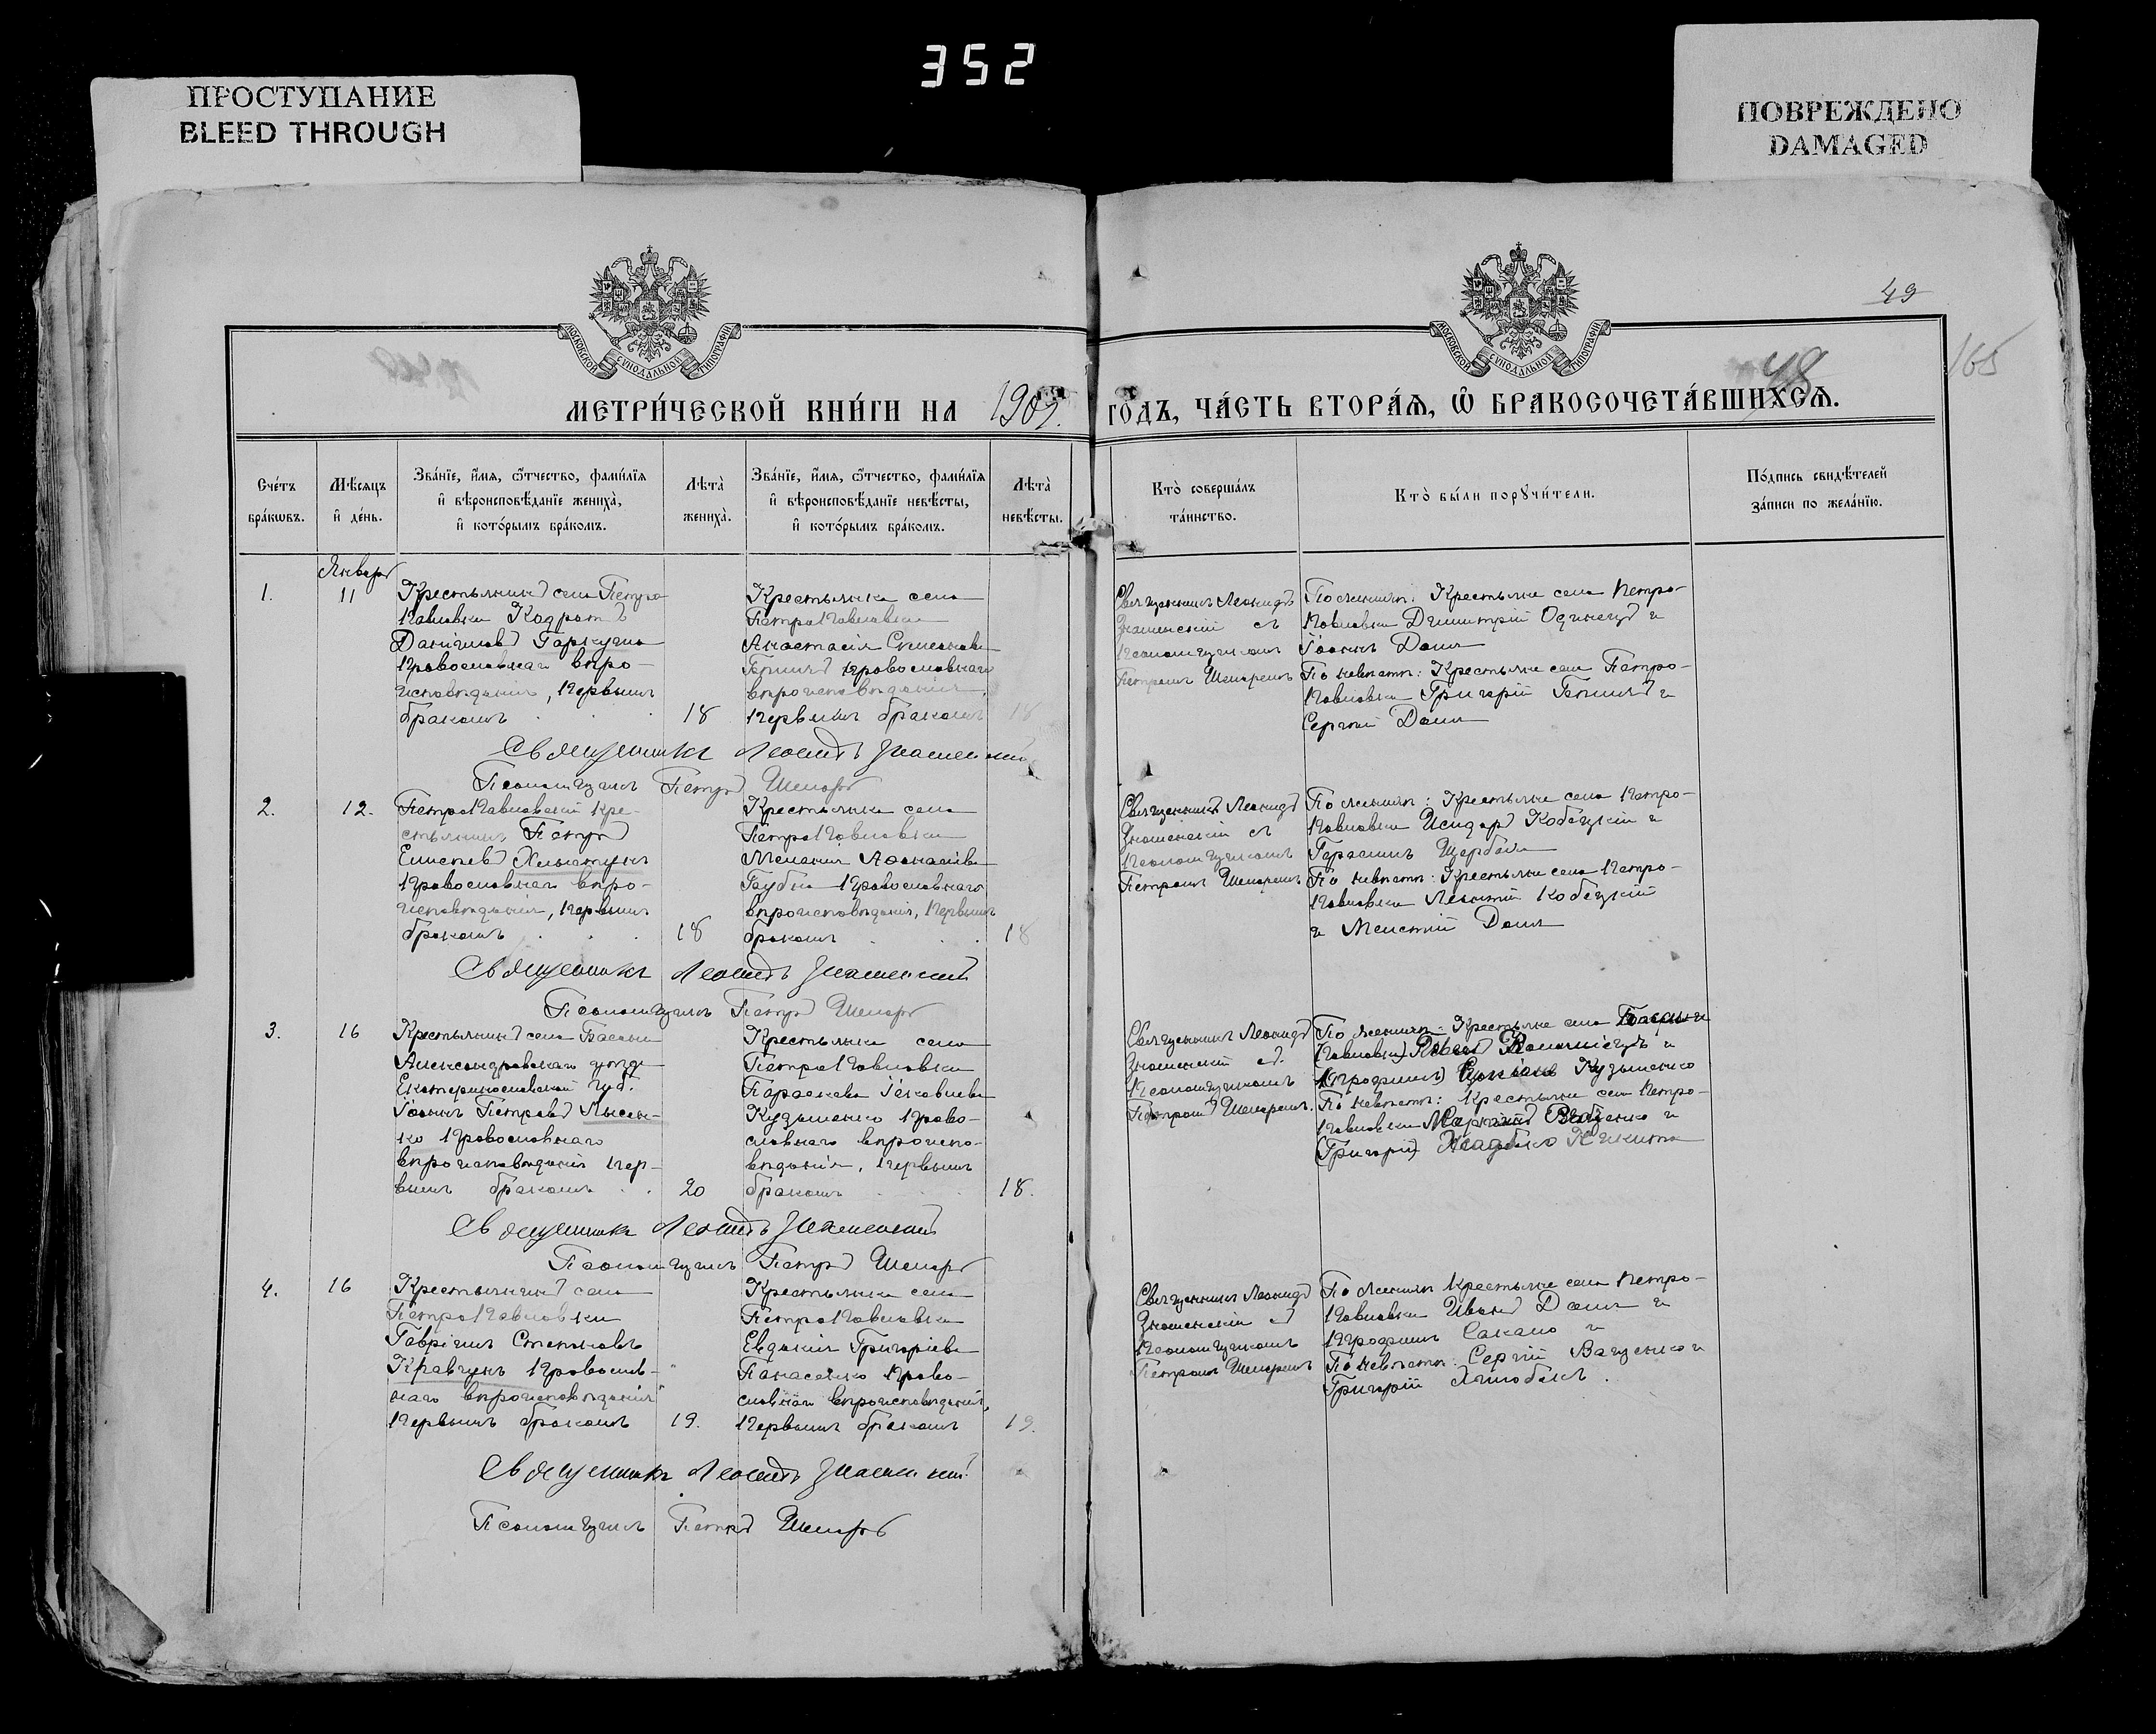 352
ПРОСТУПАНИЕ
BLEED THROUGH
ПОВРЕЖДЕНО
DAMAGED
49
48
165
МОСКОВСКОЙ СУНОДАЛЬНОЙ ТИПОГРАФІИ
МОСКОВСКОЙ СУНОДАЛЬНОЙ ТИПОГРАФІИ
МЕТРИ́ЧЕСКОЙ КНИ́ГИ НА 1909. ГО́ДЪ, ЧА́СТЬ ВТОРА́Ѧ, Ѽ БРАКОСОЧЕТА́ВШИХСѦ.
Сче́тъ бра́кѡвъ.
Мѣ́сѧцъ и҆ де́нь.
Зва́нїе, и҆́мѧ, ѻ҆́тчество, фами́лїѧ
и҆ вѣроисповѣ́данїе жениха̀,
и҆ кото́рымъ бра́комъ.
Лѣта̀ жениха̀.
Зва́нїе, и҆́мѧ, ѻ҆́тчество, фами́лїѧ
и҆ вѣроисповѣ́данїе невѣ́сты,
и҆ кото́рымъ бра́комъ.
Лѣта̀ невѣ́сты.
Кто̀ соверша́лъ та́инство.
Кто̀ бы́ли порꙋчи́тели.
По́дпись свидѣ́телей
за́писи по жела́нїю.
Январь
1.
11
Крестьянинъ села Петро
Павловки Кодратъ
Даніиловъ Гаркуша
православнаго вѣро-
исповѣданія, первымъ
бракомъ
18
Крестьянка села
Петро Павловки
Анастасія
православнаго
вѣроисповѣданія,
первымъ бракомъ
18
Священникъ Леонидъ
Знаменскій съ
псаломщикомъ
Петромъ
По женихѣ: Крестьяне села Петро-
Павловки Димитрій Одинецъ и
Іоаннъ
По невѣстѣ: Крестьяне села Петро-
Павловки Григорій
Сергій
Священникъ Леонидъ Знаменскій
Псаломщикъ Петръ
2.
12.
Петро Павловскій кре-
стьянинъ Петръ
Елисеевъ
православнаго вѣро-
исповѣданія, первымъ
бракомъ
18
Крестьянка села
Петро Павловки
Меланія
православнаго
вѣроисповѣданія, первымъ
бракомъ
18
Священникъ Леонидъ
Знаменскій съ
псаломщикомъ
Петромъ
По женихѣ: Крестьяне села Петро-
Павловки Исидоръ Кобецкій и
Герасимъ Щербак
По невѣстѣ: Крестьяне села Петро-
Павловки Леонтій Кобецкій
и
Священникъ Леонидъ Знаменскій
Псаломщикъ Петръ
3.
16
Крестьянинъ села Басани
Александровскаго уѣзда
Екатеринославской губ.
Іоаннъ Петровъ Лысен-
ко православнаго
вѣроисповѣданія пер-
вымъ бракомъ
20
Крестьянка села
Петро Павловки
Параскева Іаковлева
Кузьменко право-
славнаго вѣроиспо-
вѣданія, первымъ
бракомъ
18.
Священникъ Леонидъ
Знаменскій съ
псаломщикомъ
Петромъ
По женихѣ: Крестьяне села Басани
Кузьменко
По невѣстѣ: Крестьяне села Петро-
Павловки
Священникъ Леонидъ Знаменскій
Псаломщикъ Петръ
4.
16
Крестьянинъ села
Петро Павловки
Гавріилъ Степановъ
Кравчукъ православ-
наго вѣроисповѣданія
первымъ бракомъ
19.
Крестьянка села
Петро Павловки
Евдокія Григоріева
Панасенко право-
славнаго вѣроисповѣданія,
первымъ бракомъ
19.
Священникъ Леонидъ
Знаменскій съ
псаломщикомъ
Петромъ
По женихѣ Крестьяне села Петро-
Павловки Иванъ
Трофимъ Сакало и
По невѣстѣ: Сергій Ващенко и
Григорій
Священникъ Леонидъ Знаменскій
Псаломщикъ Петръ